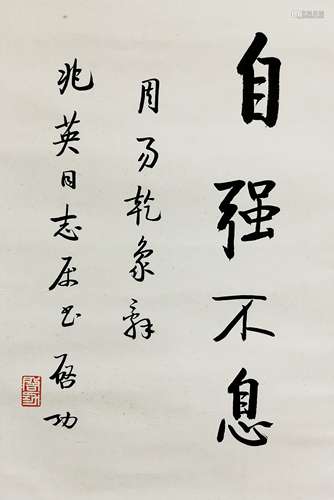 自强不息
周易乾象辞
兆英同志属书 启功